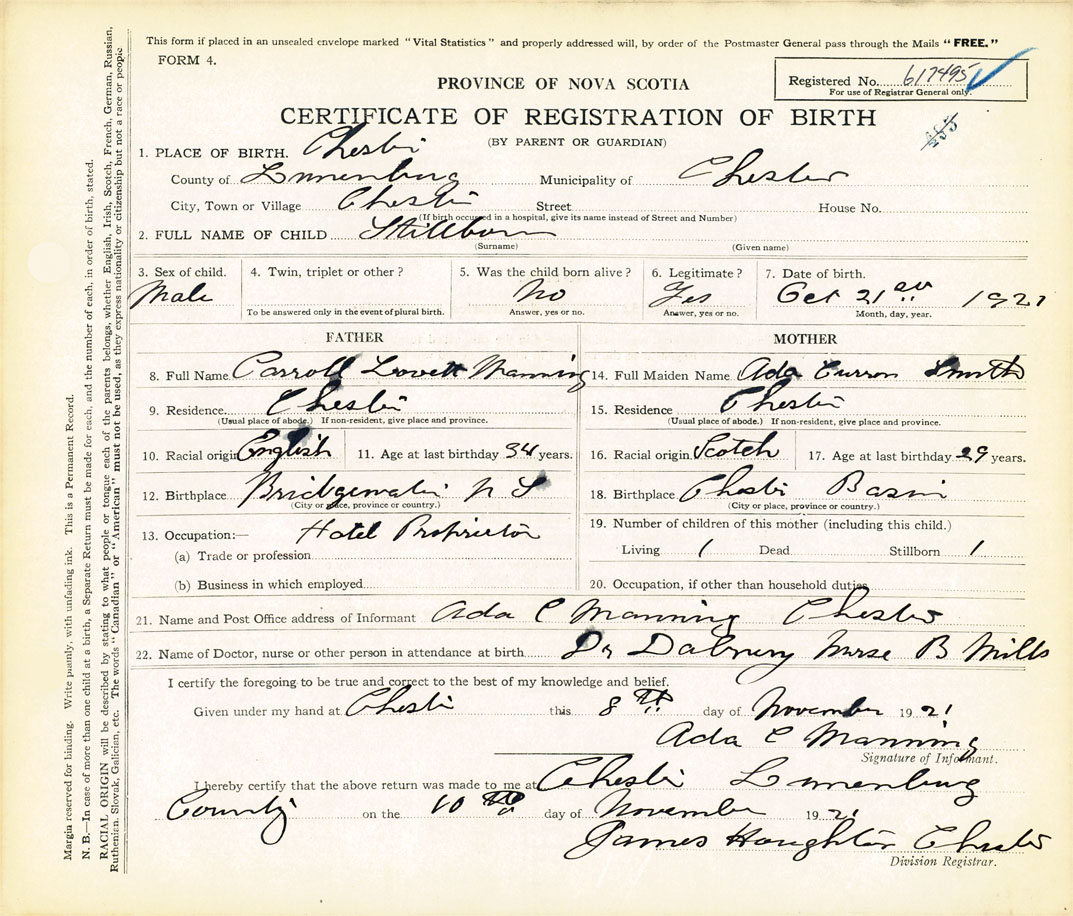 This form if placed in an unsealed envelope marked "Vital Statistics" and properly addressed will, by order of the Postmaster General pass through the Mails "FREE."
FORM 4.
Registered No. 617495
For use of Registrar General only.
PROVINCE OF NOVA SCOTIA
CERTIFICATE OF REGISTRATION OF BIRTH
(BY PARENT OR GUARDIAN)
1. PLACE OF BIRTH. Chester
County of Lunenburg Municipality of Chester
City, Town or Village Chester Street House No.
(If birth occurred in a hospital, give its name instead of Street and Number)
2. FULL NAME OF CHILD Stillborn
(Surname) (Given name)
3. Sex of child. 4. Twin, triplet or other? 5. Was the child born alive? 6. Legitimate? 7. Date of birth.
Male No Yes Oct 21 1921
To be answered only in the event of plural birth. Answer, yes or no. Answer, yes or no. Month, day, year.
FATHER MOTHER
8. Full Name Carroll Lovett Manning 14. Full Maiden Name Ada Curron Smith
9. Residence Chester 15. Residence Chester
(Usual place of abode.) If non-resident, give place and province. (Usual place of abode.) If non-resident, give place and province.
10. Racial origin English 11. Age at last birthday 34 years. 16. Racial origin Scotch 17. Age at last birthday 29 years.
12. Birthplace Bridgewater N S 18. Birthplace Chester Basin
(City or place, province or country.) (City or place, province or country.)
13. Occupation:— Hotel Proprietor 19. Number of children of this mother (including this child.)
(a) Trade or profession Living 1 Dead Stillborn 1
(b) Business in which employed 20. Occupation, if other than household duties
21. Name and Post Office address of Informant Ada C Manning Chester
22. Name of Doctor, nurse or other person in attendance at birth Dr Nurse B Mills
I certify the foregoing to be true and correct to the best of my knowledge and belief.
Given under my hand at Chester this 8th day of November 1921
Ada C Manning
Signature of Informant.
I hereby certify that the above return was made to me at Chester Lunenburg
County on the 10th day of November 1921
James Houghton Chester
Division Registrar.
Margin reserved for binding. Write plainly, with unfading ink. This is a Permanent Record.
N. B.—In case of more than one child at a birth, a Separate Return must be made for each, and the number of each, in order of birth, stated.
RACIAL ORIGIN will be described by stating to what people or tongue each of the parents belongs, whether English, Irish, Scotch, French, German, Russian,
Ruthenian, Slovak, Galician, etc. The words "Canadian" or "American" must not be used, as they express nationality or citizenship but not a race or people